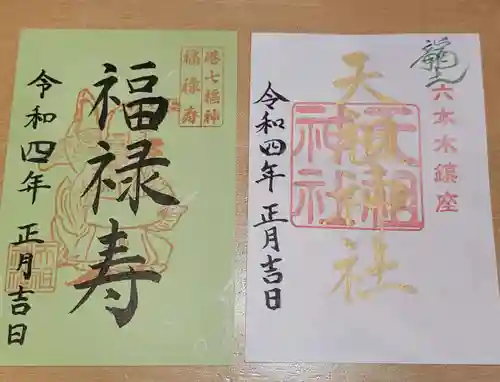 港七福神
福禄寿
福禄寿
令和四年 正月吉日
龍土
六本木鎮座
天祖神社
天祖神社
令和四年 正月吉日